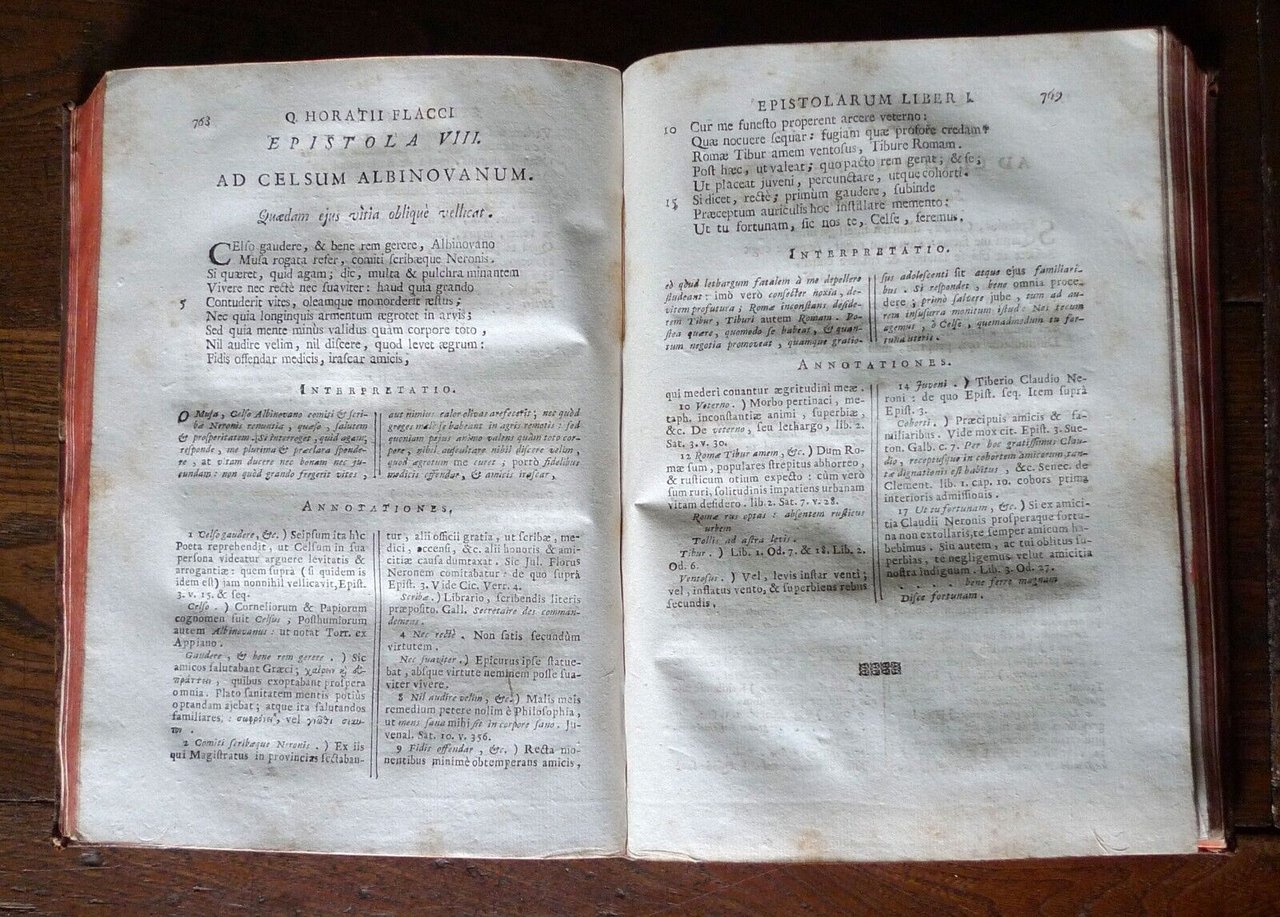 763
Q. HORATII FLACCI
EPISTOLA VIII.
AD CELSUM ALBINOVANUM.
Quædam ejus vitia obliquè vellicat.
CElſo gaudere, & bene rem gerere, Albinovano
Muſa rogata refer, comiti ſcribæque Neronis.
Si quæret, quid agam; dic, multa & pulchra minantem
Vivere nec rectè nec ſuaviter: haud quia grando
5 Contuderit vites, oleamque momorderit æſtus;
Nec quia longinquis armentum ægrotet in arvis;
Sed quia mente minùs validus quàm corpore toto,
Nil audire velim, nil diſcere, quod levet ægrum:
Fidis offendar medicis, iraſcar amicis,
INTERPRETATIO.
O Muſa, Celſo Albinovano comiti & ſcri-
bæ Neronis renuntia, quæſo, ſalutem
& proſperitatem. Si interroget, quid agam,
reſponde, me plurima & præclara ſponde-
re, at vitam ducere nec bonam nec ju-
cundam: non quòd grando fregerit vites,
aut nimius calor olivas arefecerit; nec quòd
greges malè ſe habeant in agris remotis: ſed
quoniam pejus animo valens quàm toto cor-
pore, nihil auſcultare nihil diſcere velim,
quod ægrotum me curet; porrò fidelibus
medicis offendar, & amicis iraſcar,
ANNOTATIONES.
1 Celſo gaudere, &c.) Seipſum ita hîc
Poeta reprehendit, ut Celſum in ſua
perſona videatur arguere levitatis &
arrogantiæ: quem ſuprà (ſi quidem is
idem eſt) jam nonnihil vellicavit, Epiſt.
3. v. 15. & ſeq.
Celſo.) Corneliorum & Papiorum
cognomen fuit Celſus, Poſthumiorum
autem Albinovanus: ut notat Torr. ex
Appiano.
Gaudere, & bene rem gerere.) Sic
amicos ſalutabant Græci;
quibus exoptabant proſpera
omnia. Plato ſanitatem mentis potiùs
optandam ajebat; atque ita ſalutandos
familiares: vel
2 Comiti ſcribæque Neronis.) Ex iis
qui Magiſtratus in provincias ſectaban-
tur, alii officii gratia, ut ſcribæ, me-
dici, accenſi, &c. alii honoris & ami-
citiæ cauſa dumtaxat. Sic Jul. Florus
Neronem comitabatur: de quo ſuprà
Epiſt. 3. Vide Cic. Verr. 4.
Scribæ.) Librario, ſcribendis literis
præpoſito. Gall. Secretaire des comman-
demens.
4 Nec rectè. Non ſatis ſecundùm
virtutem.
Nec ſuaviter.) Epicurus ipſe ſtatue-
bat, abſque virtute neminem poſſe ſua-
viter vivere.
8 Nil audire velim, &c.) Malis meis
remedium petere nolim è Philoſophia,
ut mens ſana mihi ſit in corpore ſano. Ju-
venal. Sat. 10. v. 356.
9 Fidis offendar, &c.) Recta mo-
nentibus minimè obtemperans amicis,
EPISTOLARUM LIBER I. 769
10 Cur me funeſto properent arcere veterno:
Quæ nocuere ſequar: fugiam quæ profore credam:
Romæ Tibur amem ventoſus, Tibure Romam.
Poſt hæc, ut valeat; quo pacto rem gerat; & ſe;
Ut placeat juveni, percunctare, utque cohorti.
15 Si dicet, rectè; primùm gaudere, ſubinde
Præceptum auriculis hoc inſtillare memento:
Ut tu fortunam, ſic nos te, Celſe, feremus.
INTERPRETATIO.
eò quòd lethargum fatalem à me depellere
ſtudeant: imò verò conſecter noxia, de-
vitem profutura; Romæ inconſtans deſide-
rem Tibur, Tiburi autem Romam. Po-
ſtea quære, quomodo ſe habeat, & quan-
tum negotia promoveat, quamque gratio-
ſus adoleſcenti ſit atque ejus familiari-
bus. Si reſpondet, bene omnia proce-
dere; primò ſalvere jube, tum ad au-
rem inſuſurra monitum iſtud: Nos tecum
agemus, ô Celſe, quemadmodum tu for-
tuna uteris.
ANNOTATIONES.
qui mederi conantur ægritudini meæ.
10 Veterno.) Morbo pertinaci, me-
taph. inconſtantiæ animi, ſuperbiæ,
&c. De veterno, ſeu lethargo, lib. 2.
Sat. 3. v. 30.
12 Romæ Tibur amem, &c.) Dum Ro-
mæ ſum, populares ſtrepitus abhorreo,
& ruſticum otium expecto: cùm verò
ſum ruri, ſolitudinis impatiens urbanam
vitam deſidero. lib. 2. Sat. 7. v. 28.
Romæ rus optas: abſentem ruſticus
urbem
Tollis ad aſtra levis.
Tibur.) Lib. 1. Od. 7. & 18. Lib. 2.
Od. 6.
Ventoſus.) Vel, levis inſtar venti;
vel, inflatus vento, & ſuperbiens rebus
ſecundis,
14 Juveni.) Tiberio Claudio Ne-
roni: de quo Epiſt. ſeq. Item ſuprà
Epiſt. 3.
Cohorti.) Præcipuis amicis & fa-
miliaribus. Vide mox cit. Epiſt. 3. Sue-
ton. Galb. c. 7. Per hoc gratiſſimus Clau-
dio, receptuſque in cohortem amicorum, tan-
tæ dignationis eſt habitus, &c. Senec. de
Clement. lib. 1. cap. 10. cobors prima
interioris admiſſionis.
17 Ut tu fortunam, &c.) Si ex amici-
tia Claudii Neronis proſperaque fortu-
na non extollaris, te ſemper amicum ha-
bebimus. Sin autem, ac tui oblitus ſu-
perbias, te negligemus, velut amicitia
noſtra indignum. Lib. 3. Od. 27.
bene ferre magnam
Diſce fortunam.